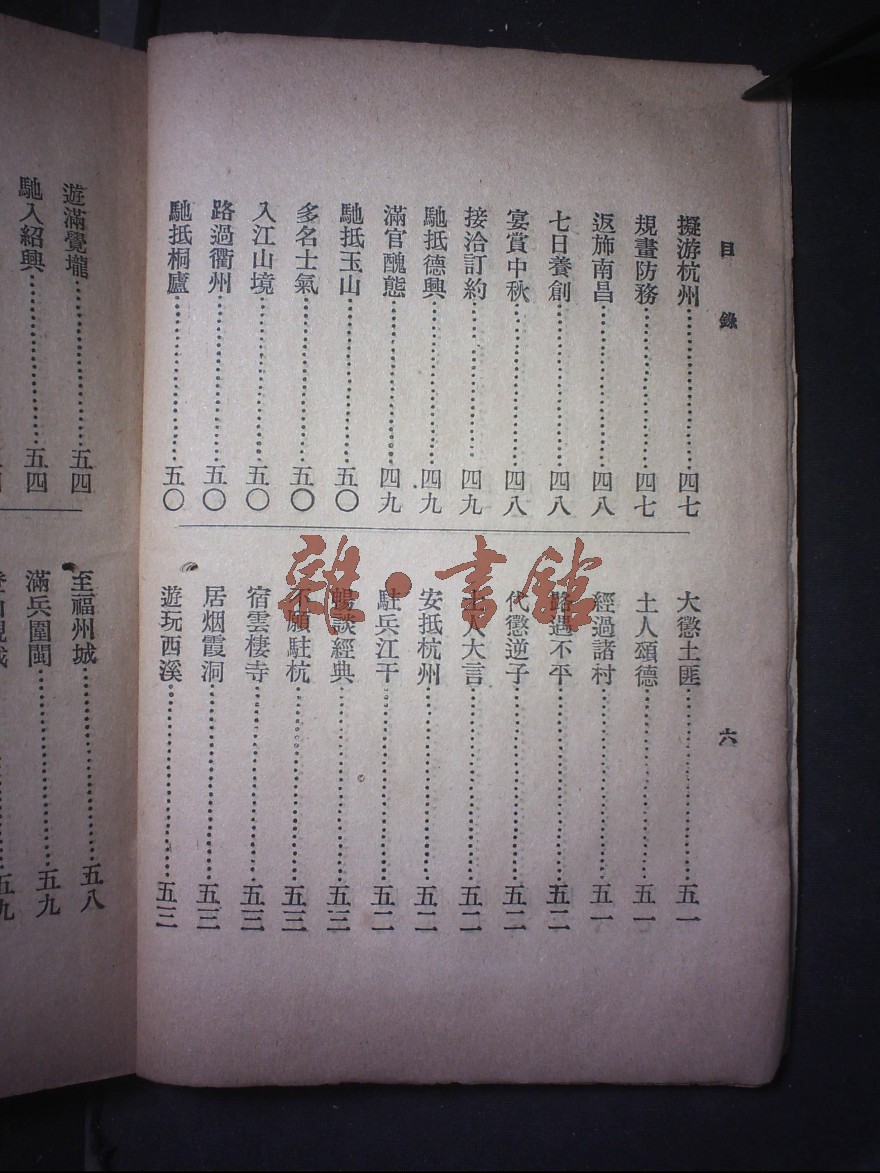 目錄
擬游杭州……四七
規畫防務……四七
返斾南昌……四八
七日養創……四八
宴賞中秋……四八
接洽訂約……四九
馳抵德興……四九
滿官醜態……四九
馳抵玉山……五〇
多名士氣……五〇
入江山境……五〇
路過衢州……五〇
馳抵桐廬……五〇
六
大懲土匪……五一
土人頌德……五一
經過諸村……五一
路遇不平……五二
代懲逆子……五二
土人大言……五二
安抵杭州……五二
駐兵江干……五二
暢談經典……五三
不願駐杭……五三
宿雲棲寺……五三
居烟霞洞……五三
遊玩西溪……五三
雜·書館
遊滿覺壠……五四
馳入紹興……五四
至福州城……五八
滿兵圍閩……五九